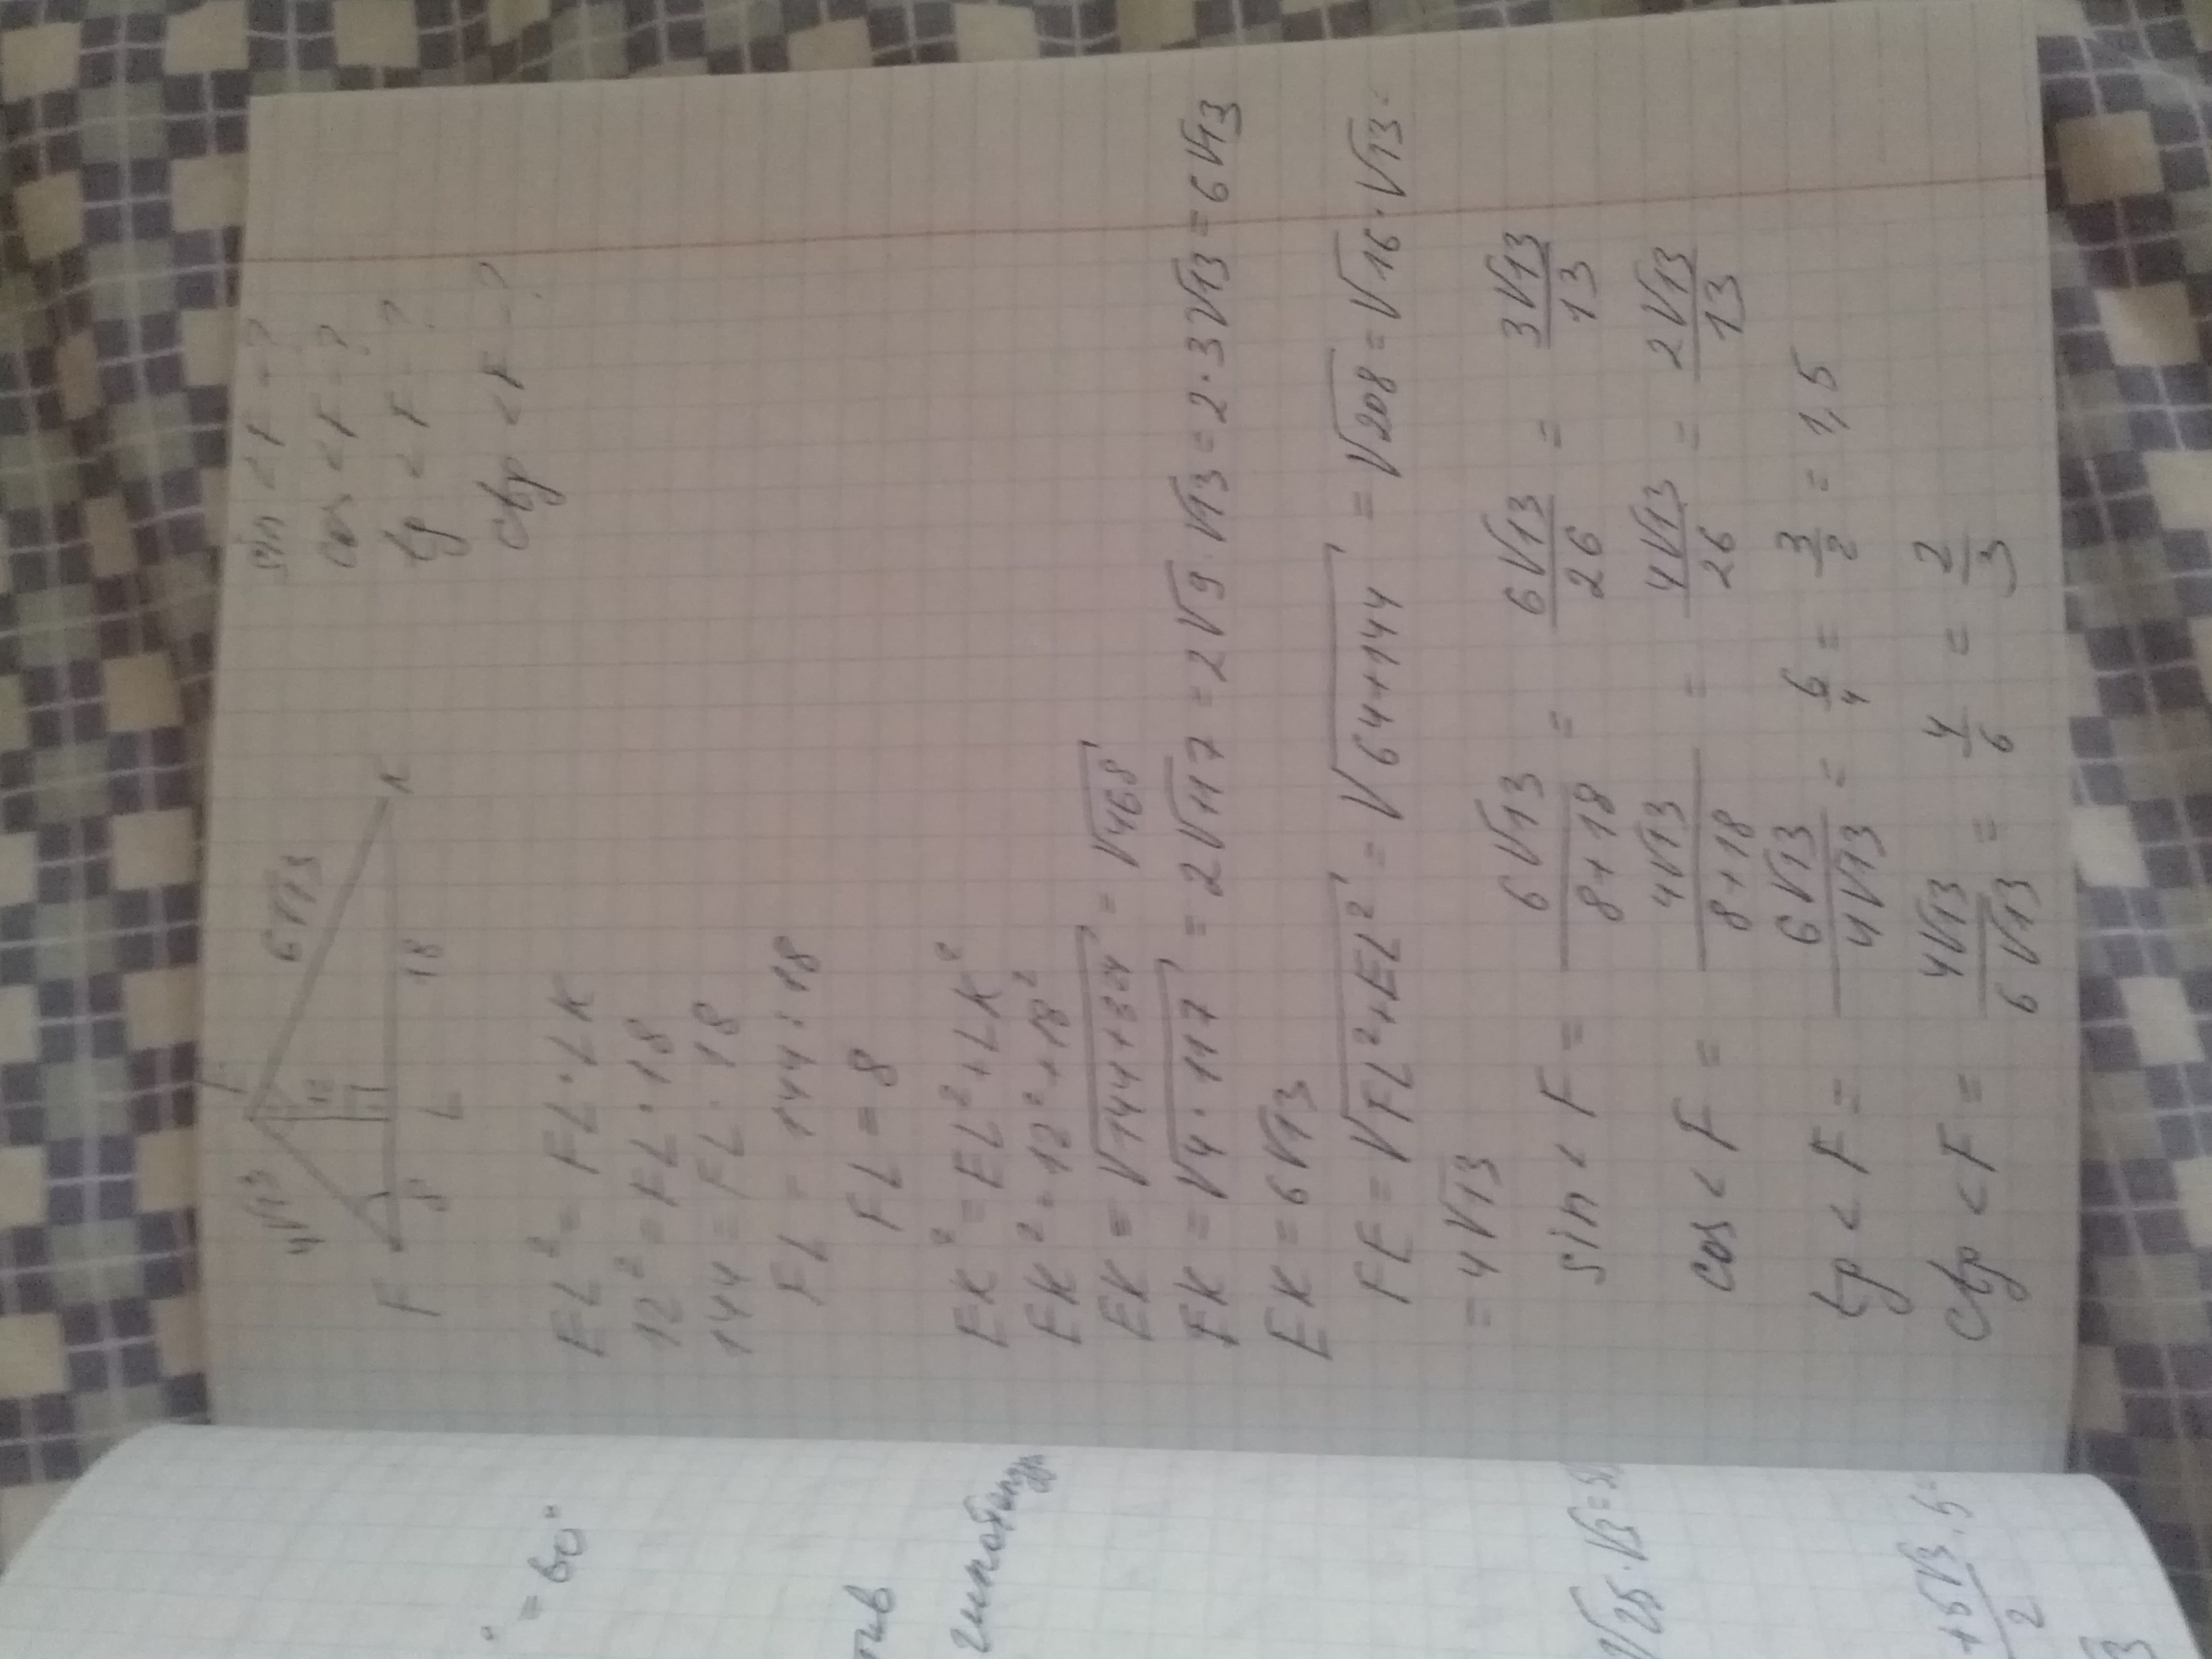 sin < F - ?
cos < F - ?
tg < F - ?
ctg < F - ?
4√13
6√13
12
F
8
L
18
K
EL² = FL · LK
12² = FL · 18
144 = FL · 18
FL = 144 : 18
FL = 8
EK² = EL² + LK²
EK² = 12² + 18²
EK = √144+324 = √468
EK = √4 · 117 = 2√117 = 2√9 · √13 = 2 · 3√13 = 6√13
EK = 6√13
FE = √FL²+EL² = √64+144 = √208 = √16 · √13 =
= 4√13
sin < F = 6√13/8+18 = 6√13/26 = 3√13/13
cos < F = 4√13/8+18 = 4√13/26 = 2√13/13
tg < F = 6√13/4√13 = 6/4 = 3/2 = 1,5
ctg < F = 4√13/6√13 = 4/6 = 2/3
° = 60°
√25 · √3 = 5